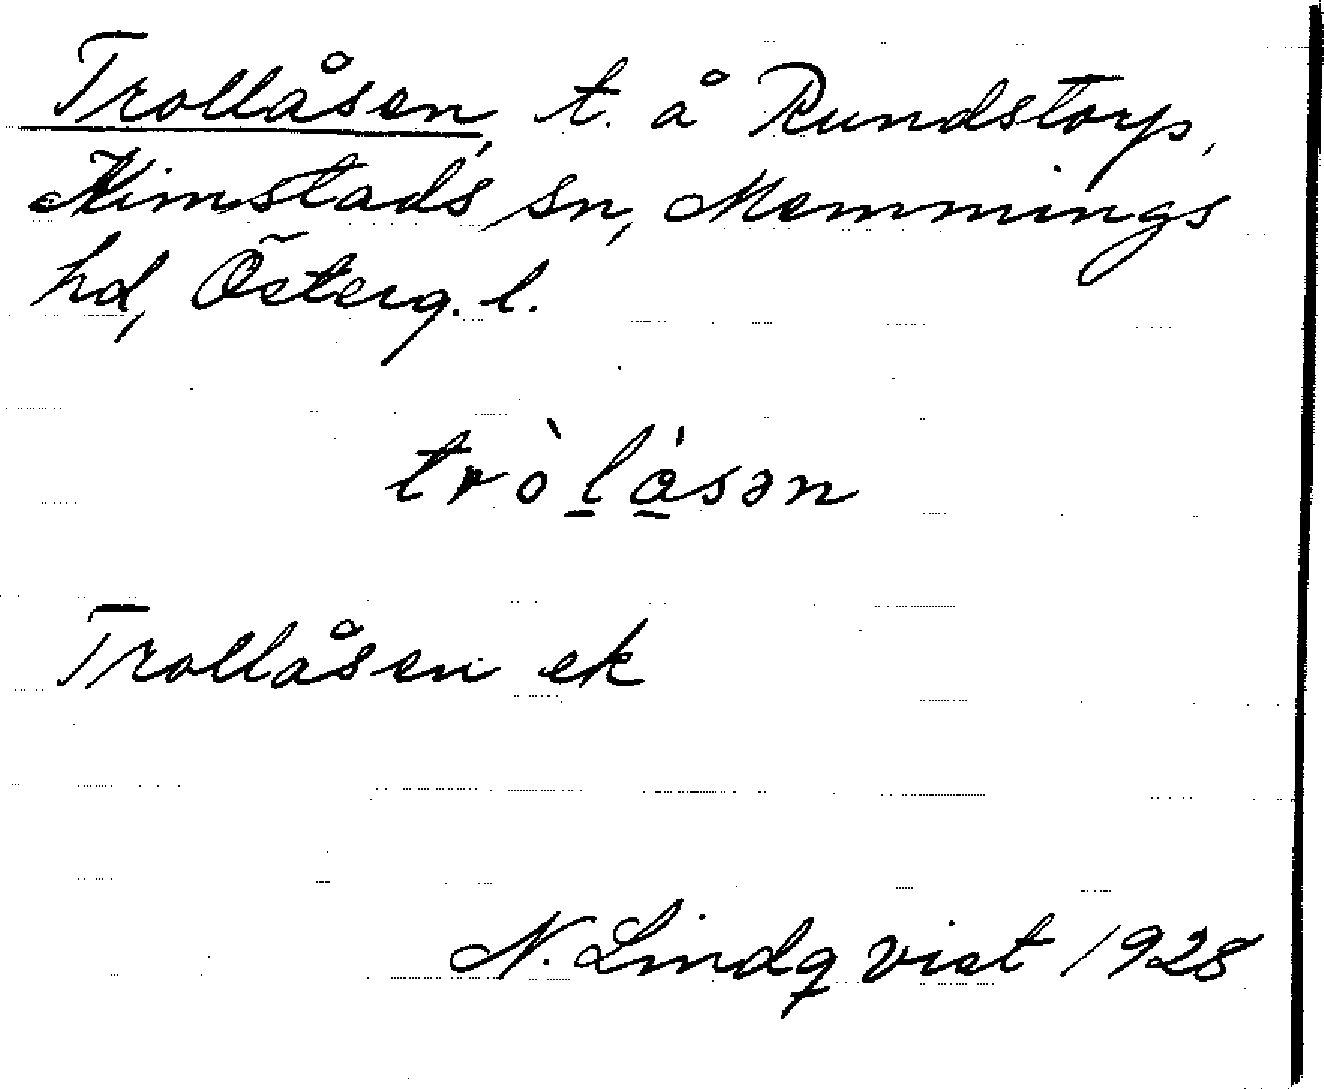 Trollåsen, t. å Rundstorp,
Kimstads sn, Memmings
hd, Österg. l.
tròlåsən
Trollåsen ek
N. Lindqvist 1928